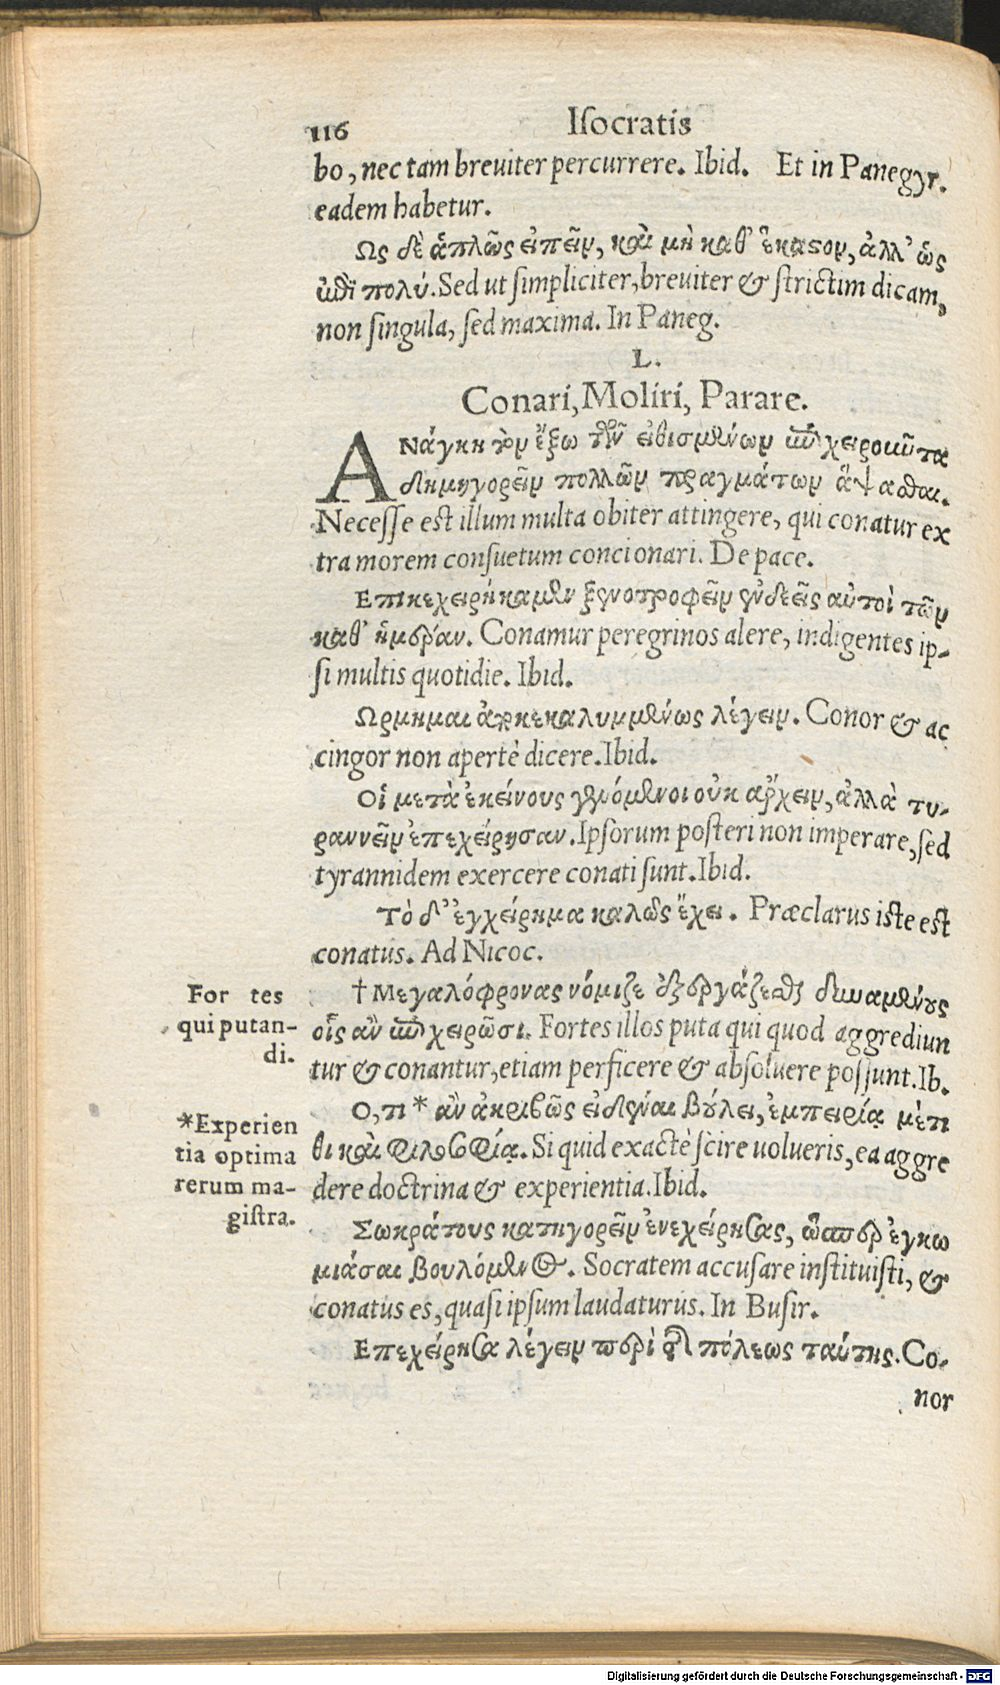 116 Iſocratis
bo, nec tam breuiter percurrere. Ibid. Et in Panegyr.
eadem habetur.
Ως δὲ ἁπλῶς εἰπεῖν, καὶ μὴ καθ' ἕκαστον, ἀλλ' ὡς
ἐπὶ πολύ. Sed ut ſimpliciter, breuiter & ſtrictim dicam,
non ſingula, ſed maxima. In Paneg.
L.
Conari, Moliri, Parare.
ΑΝάγκη τὸν ἔξω τῶν εἰθισμένων ἐπιχειροῦντα
δημηγορεῖν πολλῶν πραγμάτων ἅψασθαι.
Neceſſe eſt illum multa obiter attingere, qui conatur ex
tra morem conſuetum concionari. De pace.
Επικεχειρήκαμεν ξενοτροφεῖν ἐνδεεῖς αὐτοὶ τῶν
καθ' ἡμέραν. Conamur peregrinos alere, indigentes ip-
ſi multis quotidie. Ibid.
Ωρμημαι ἀποκεκαλυμμένως λέγειν. Conor & ac
cingor non apertè dicere. Ibid.
Οἱ μετὰ ἐκείνους γενόμενοι οὐκ ἄρχειν, ἀλλὰ τυ-
ραννεῖν ἐπεχείρησαν. Ipſorum poſteri non imperare, ſed
tyrannidem exercere conati ſunt. Ibid.
Τὸ δ' ἐγχείρημα καλῶς ἔχει. Præclarus iste eſt
conatus. Ad Nicoc.
† Μεγαλόφρονας νόμιζε ἐξεργάζεσθαι δυναμένους
οἷς ἂν ἐπιχειρῶσι. Fortes illos puta qui quod aggrediun
tur & conantur, etiam perficere & abſoluere poſſunt. Ib.
For tes
qui putan-
di.
Ο, τι * ἂν ἀκριβῶς εἰδέναι βούλει, ἐμπειρίᾳ μέτι
θι καὶ φιλοσοφίᾳ. Si quid exactè ſcire uolueris, ea aggre
dere doctrina & experientia. Ibid.
*Experien
tia optima
rerum ma-
giſtra.
Σωκράτους κατηγορεῖν ἐνεχείρησας, ὥσπερ ἐγκω
μιάσαι βουλόμενος. Socratem accuſare inſtituiſti, &
conatus es, quaſi ipſum laudaturus. In Buſir.
Επεχείρησα λέγειν περὶ τῆς πόλεως ταύτης. Co-
nor
Digitalisierung gefördert durch die Deutsche Forschungsgemeinschaft - DFG